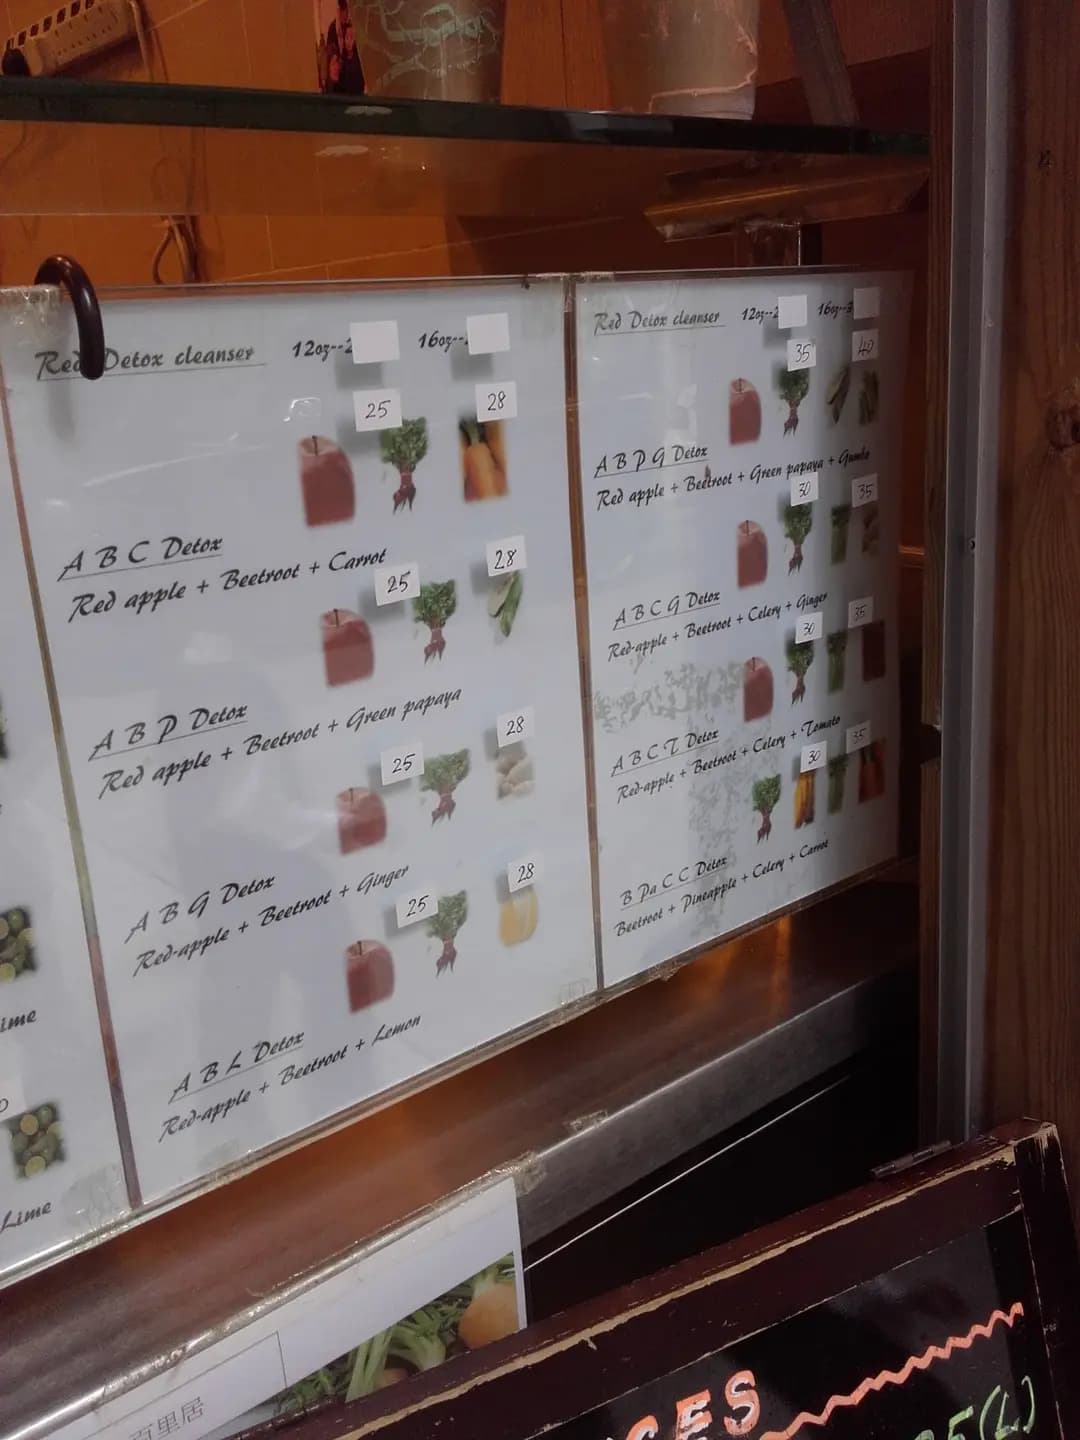 Red Detox cleanser 12oz--2 16oz--
25 28
A B C Detox
Red apple + Beetroot + Carrot
25 28
A B P Detox
Red apple + Beetroot + Green papaya
25 28
A B G Detox
Red-apple + Beetroot + Ginger
25 28
A B L Detox
Red-apple + Beetroot + Lemon
Red Detox cleanser 12oz--2 16oz--3
35 40
A B P G Detox
Red apple + Beetroot + Green papaya + Gumbo
30 35
A B C G Detox
Red-apple + Beetroot + Celery + Ginger
30 35
A B C T Detox
Red-apple + Beetroot + Celery + Tomato
30 35
B Pa C C Detox
Beetroot + Pineapple + Celery + Carrot
ime
Lime
百里居
CES
(L)